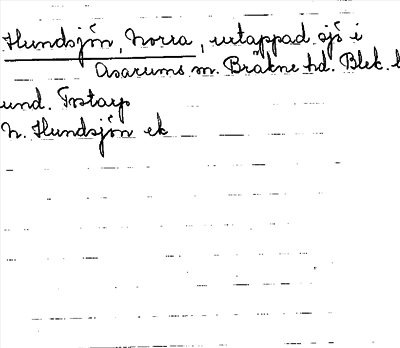 Hundsjön, Norra, urtappad sjö i
Asarums sn. Bräkne hd. Blek. l
und. Froarp
N. Hundsjön ek